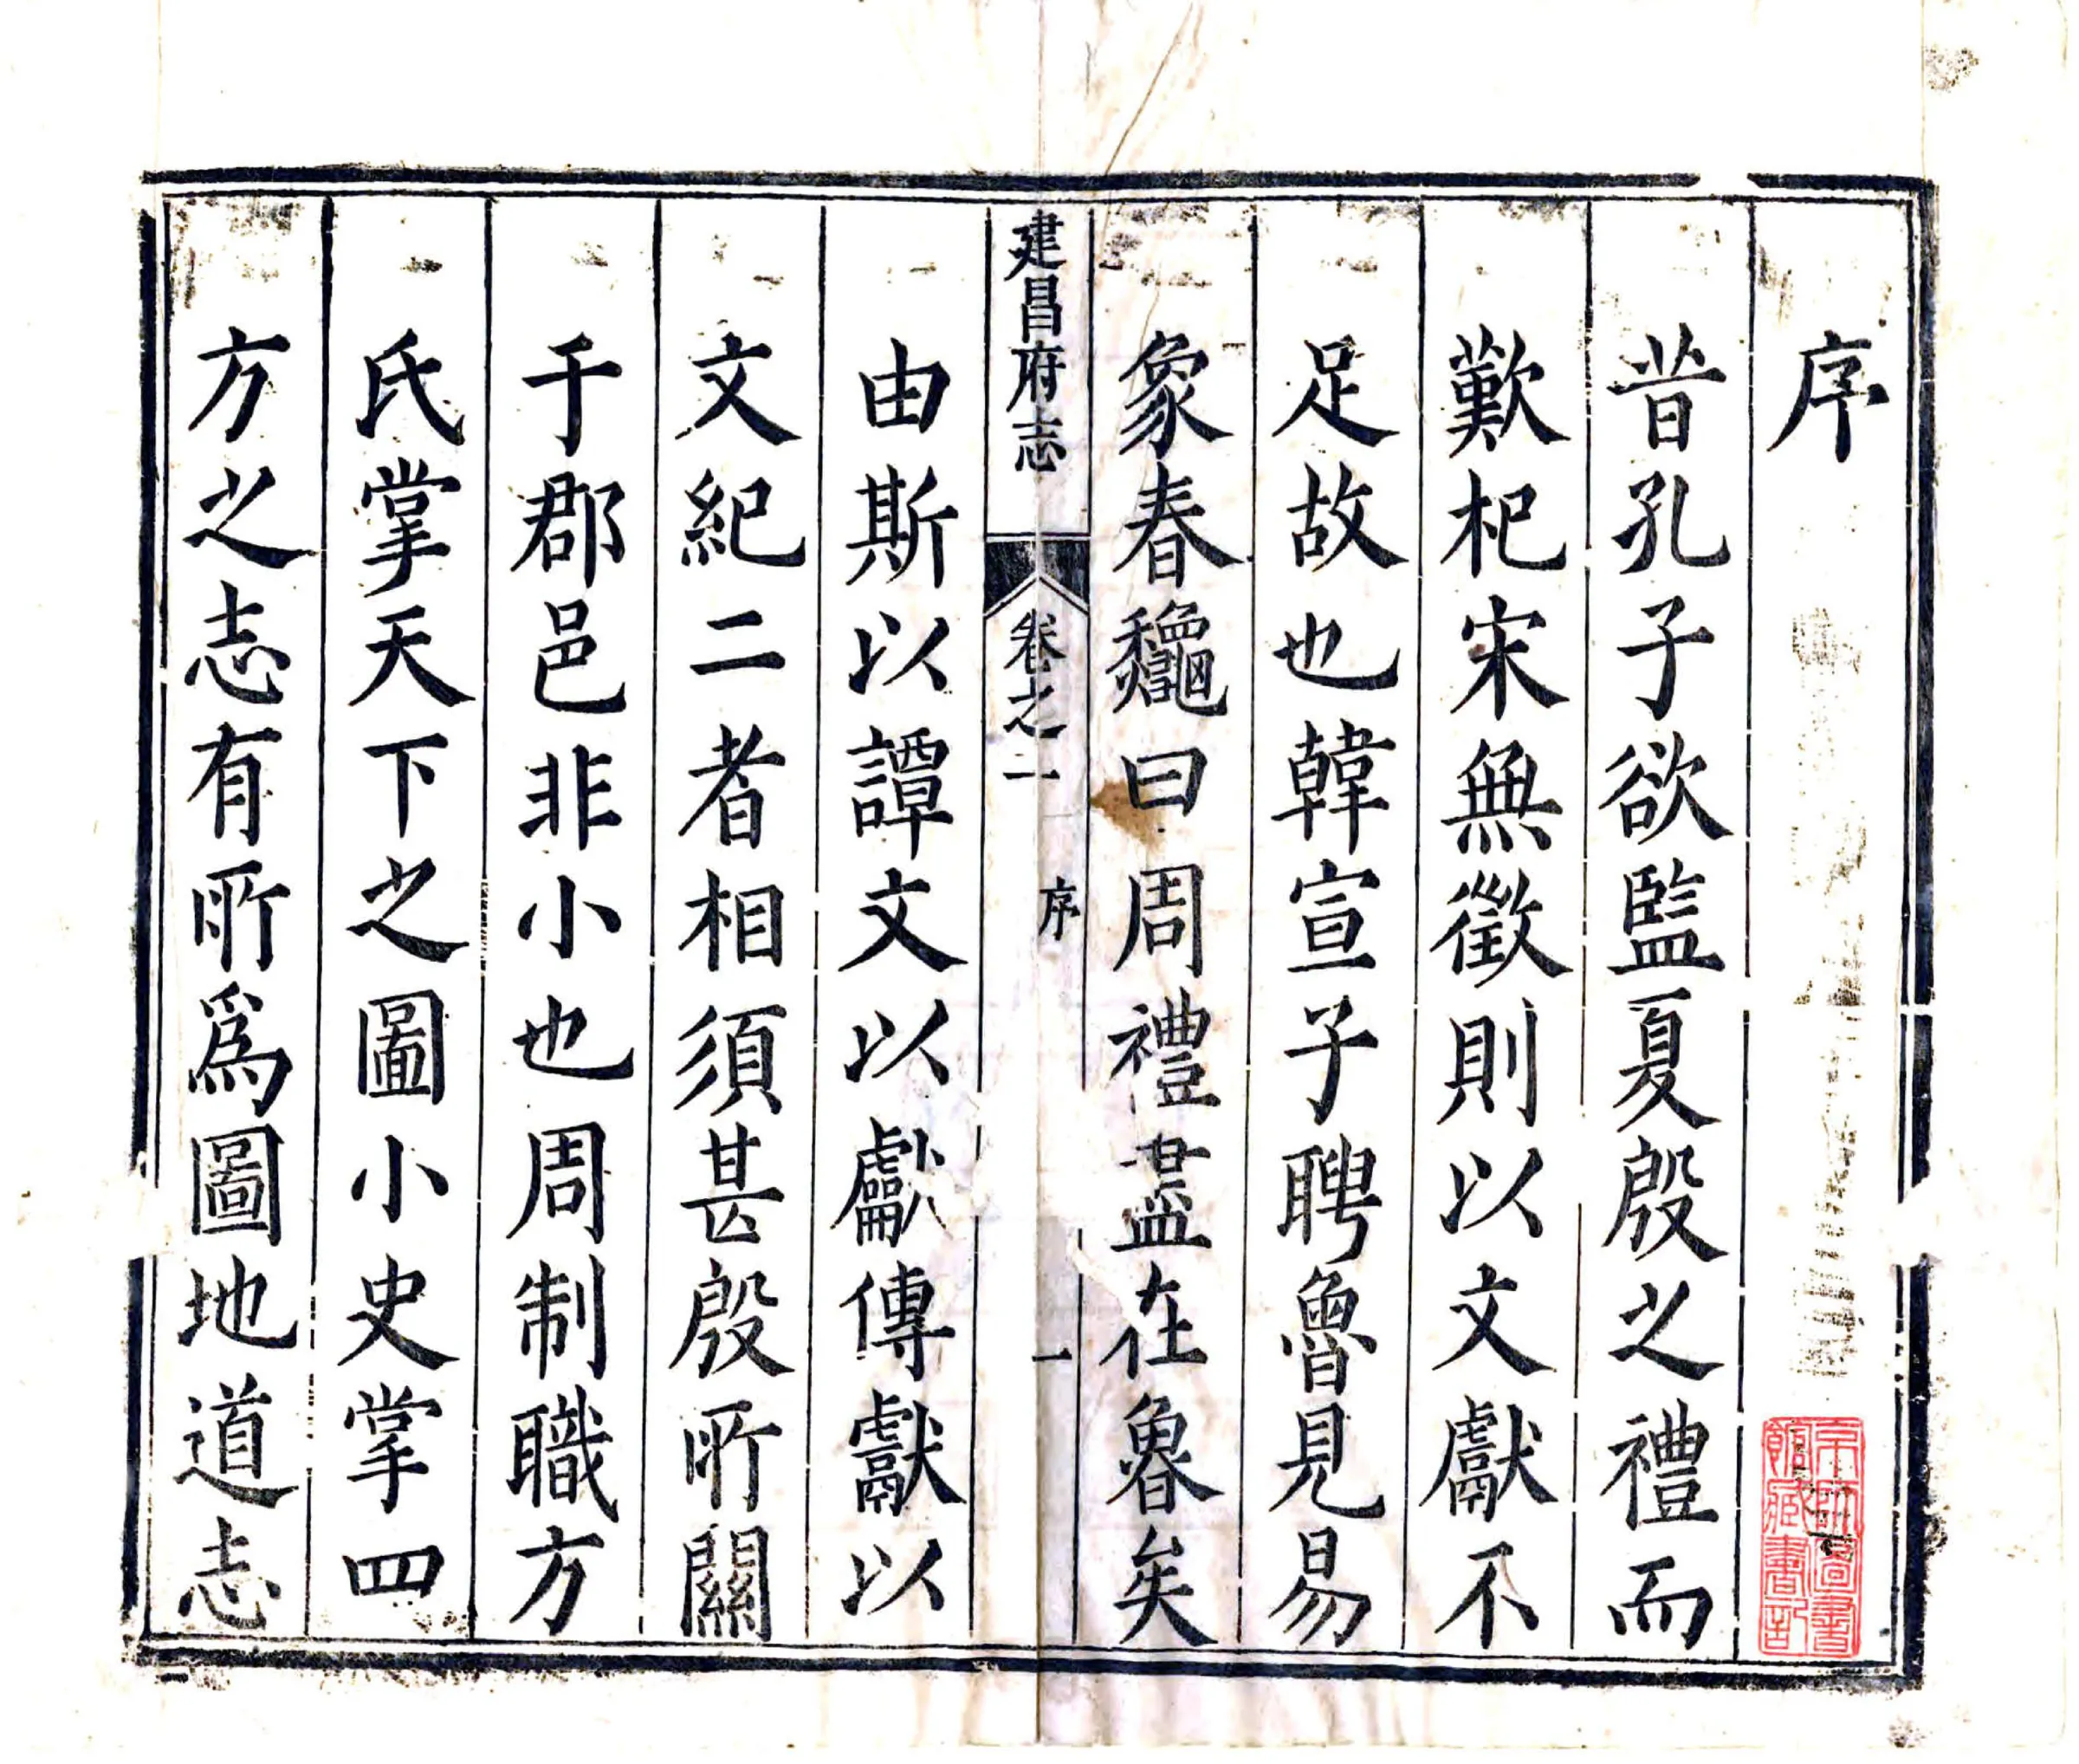 序
昔孔子欲監夏殷之禮而
歎杞宋無徵則以文獻不
足故也韓宣子聘魯見易
象春龝曰周禮盡在魯矣
建昌府志 卷之一 序 一
由斯以譚文以獻傳獻以
文紀二者相須甚殷所關
于郡邑非小也周制職方
氏掌天下之圖小史掌四
方之志有所爲圖地道志
圖書
館藏書記